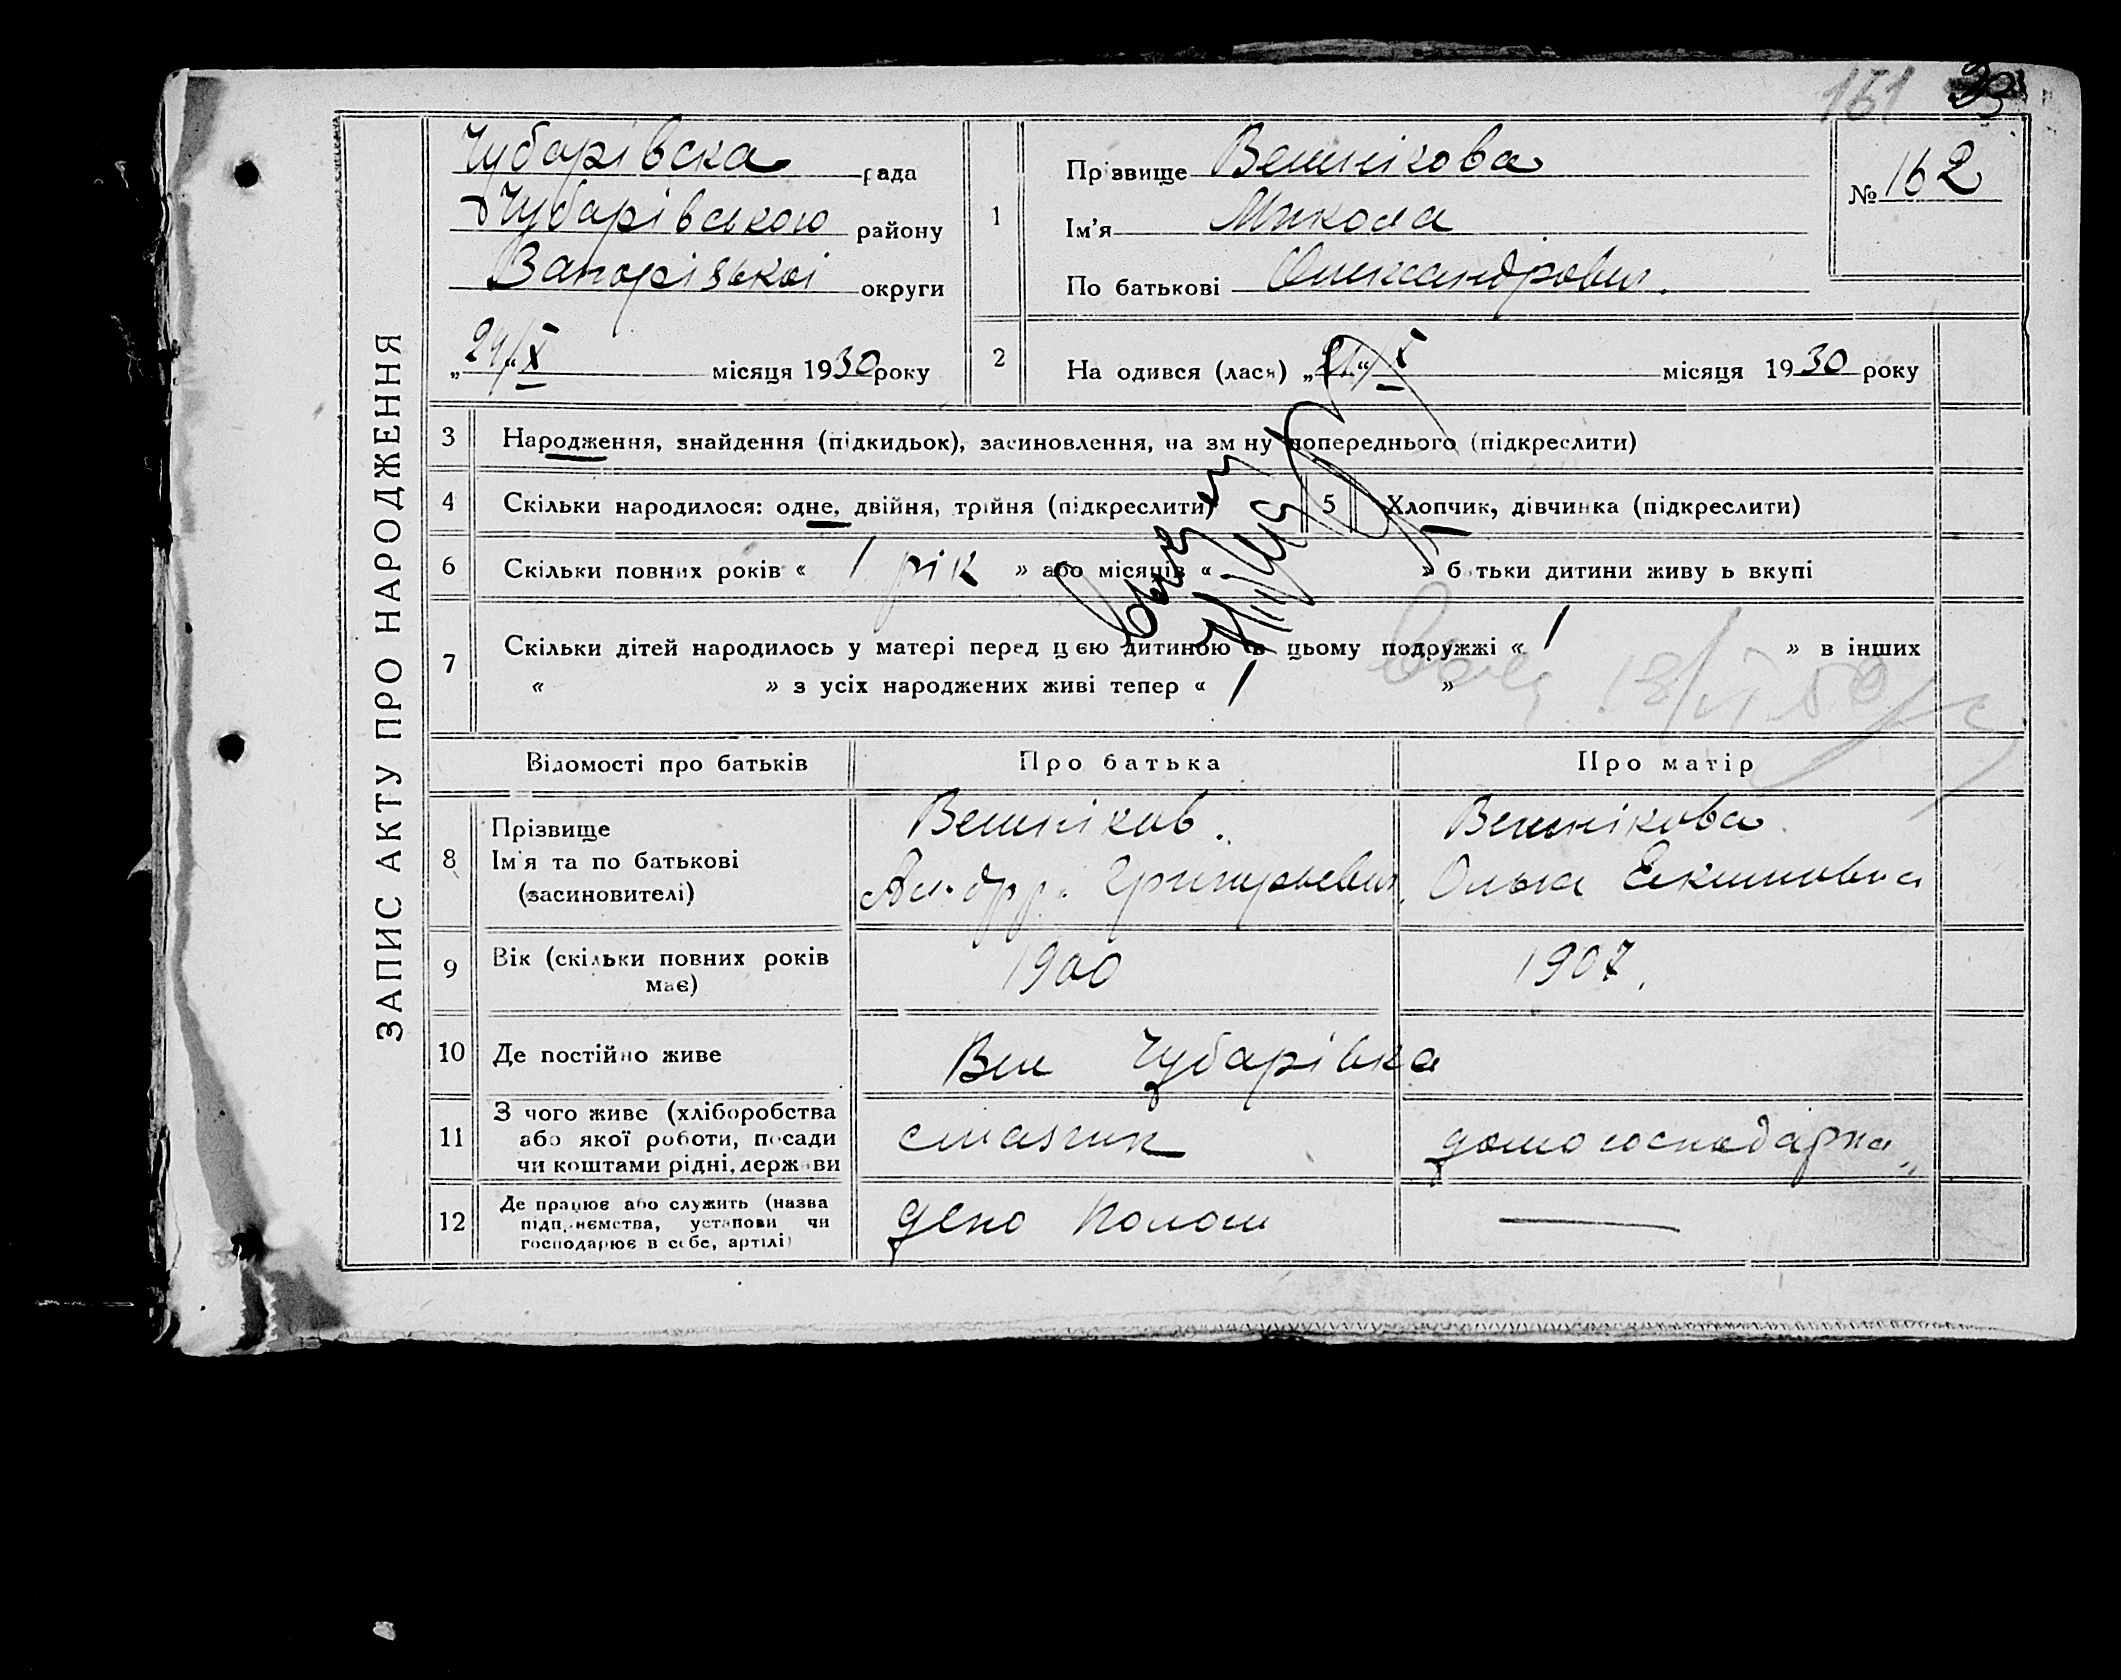 161
ЗАПИС АКТУ ПРО НАРОДЖЕННЯ
Чубарівска рада
Чубарівського району
Запорізької округи
„24“ X місяця 1930 року
1
Прізвище Вешнікова
Ім'я Микола
По батькові Олександрович.
№ 162
2
На одився (лася) „ “ X місяця 1930 року
3 Народження, знайдення (підкидьок), засиновлення, на зм ну попереднього (підкреслити)
4 Скільки народилося: одне, двійня, трійня (підкреслити)
5 Хлопчик, дівчинка (підкреслити)
6 Скільки повних років « 1 рік » або місяців « » батьки дитини живу ь вкупі
7 Скільки дітей народилось у матері перед цією дитиною в цьому подружжі « 1 » в інших
« » з усіх народжених живі тепер « 1 »
Відомості про батьків Про батька Про матір
8 Прізвище
Ім'я та по батькові
(засиновителі)
Вешніков.
Григорьевич.
Вешнікова
Ольга Екимовна
9 Вік (скільки повних років
має)
1900
1907.
10 Де постійно живе
Вел Чубарівка
11 З чого живе (хліборобства
або якої роботи, посади
чи коштами рідні, держави
смазчик
домогосподарка
12 Де працює або служить (назва
підприємства, установи чи
господарює в себе, артілі)
депо Пологи